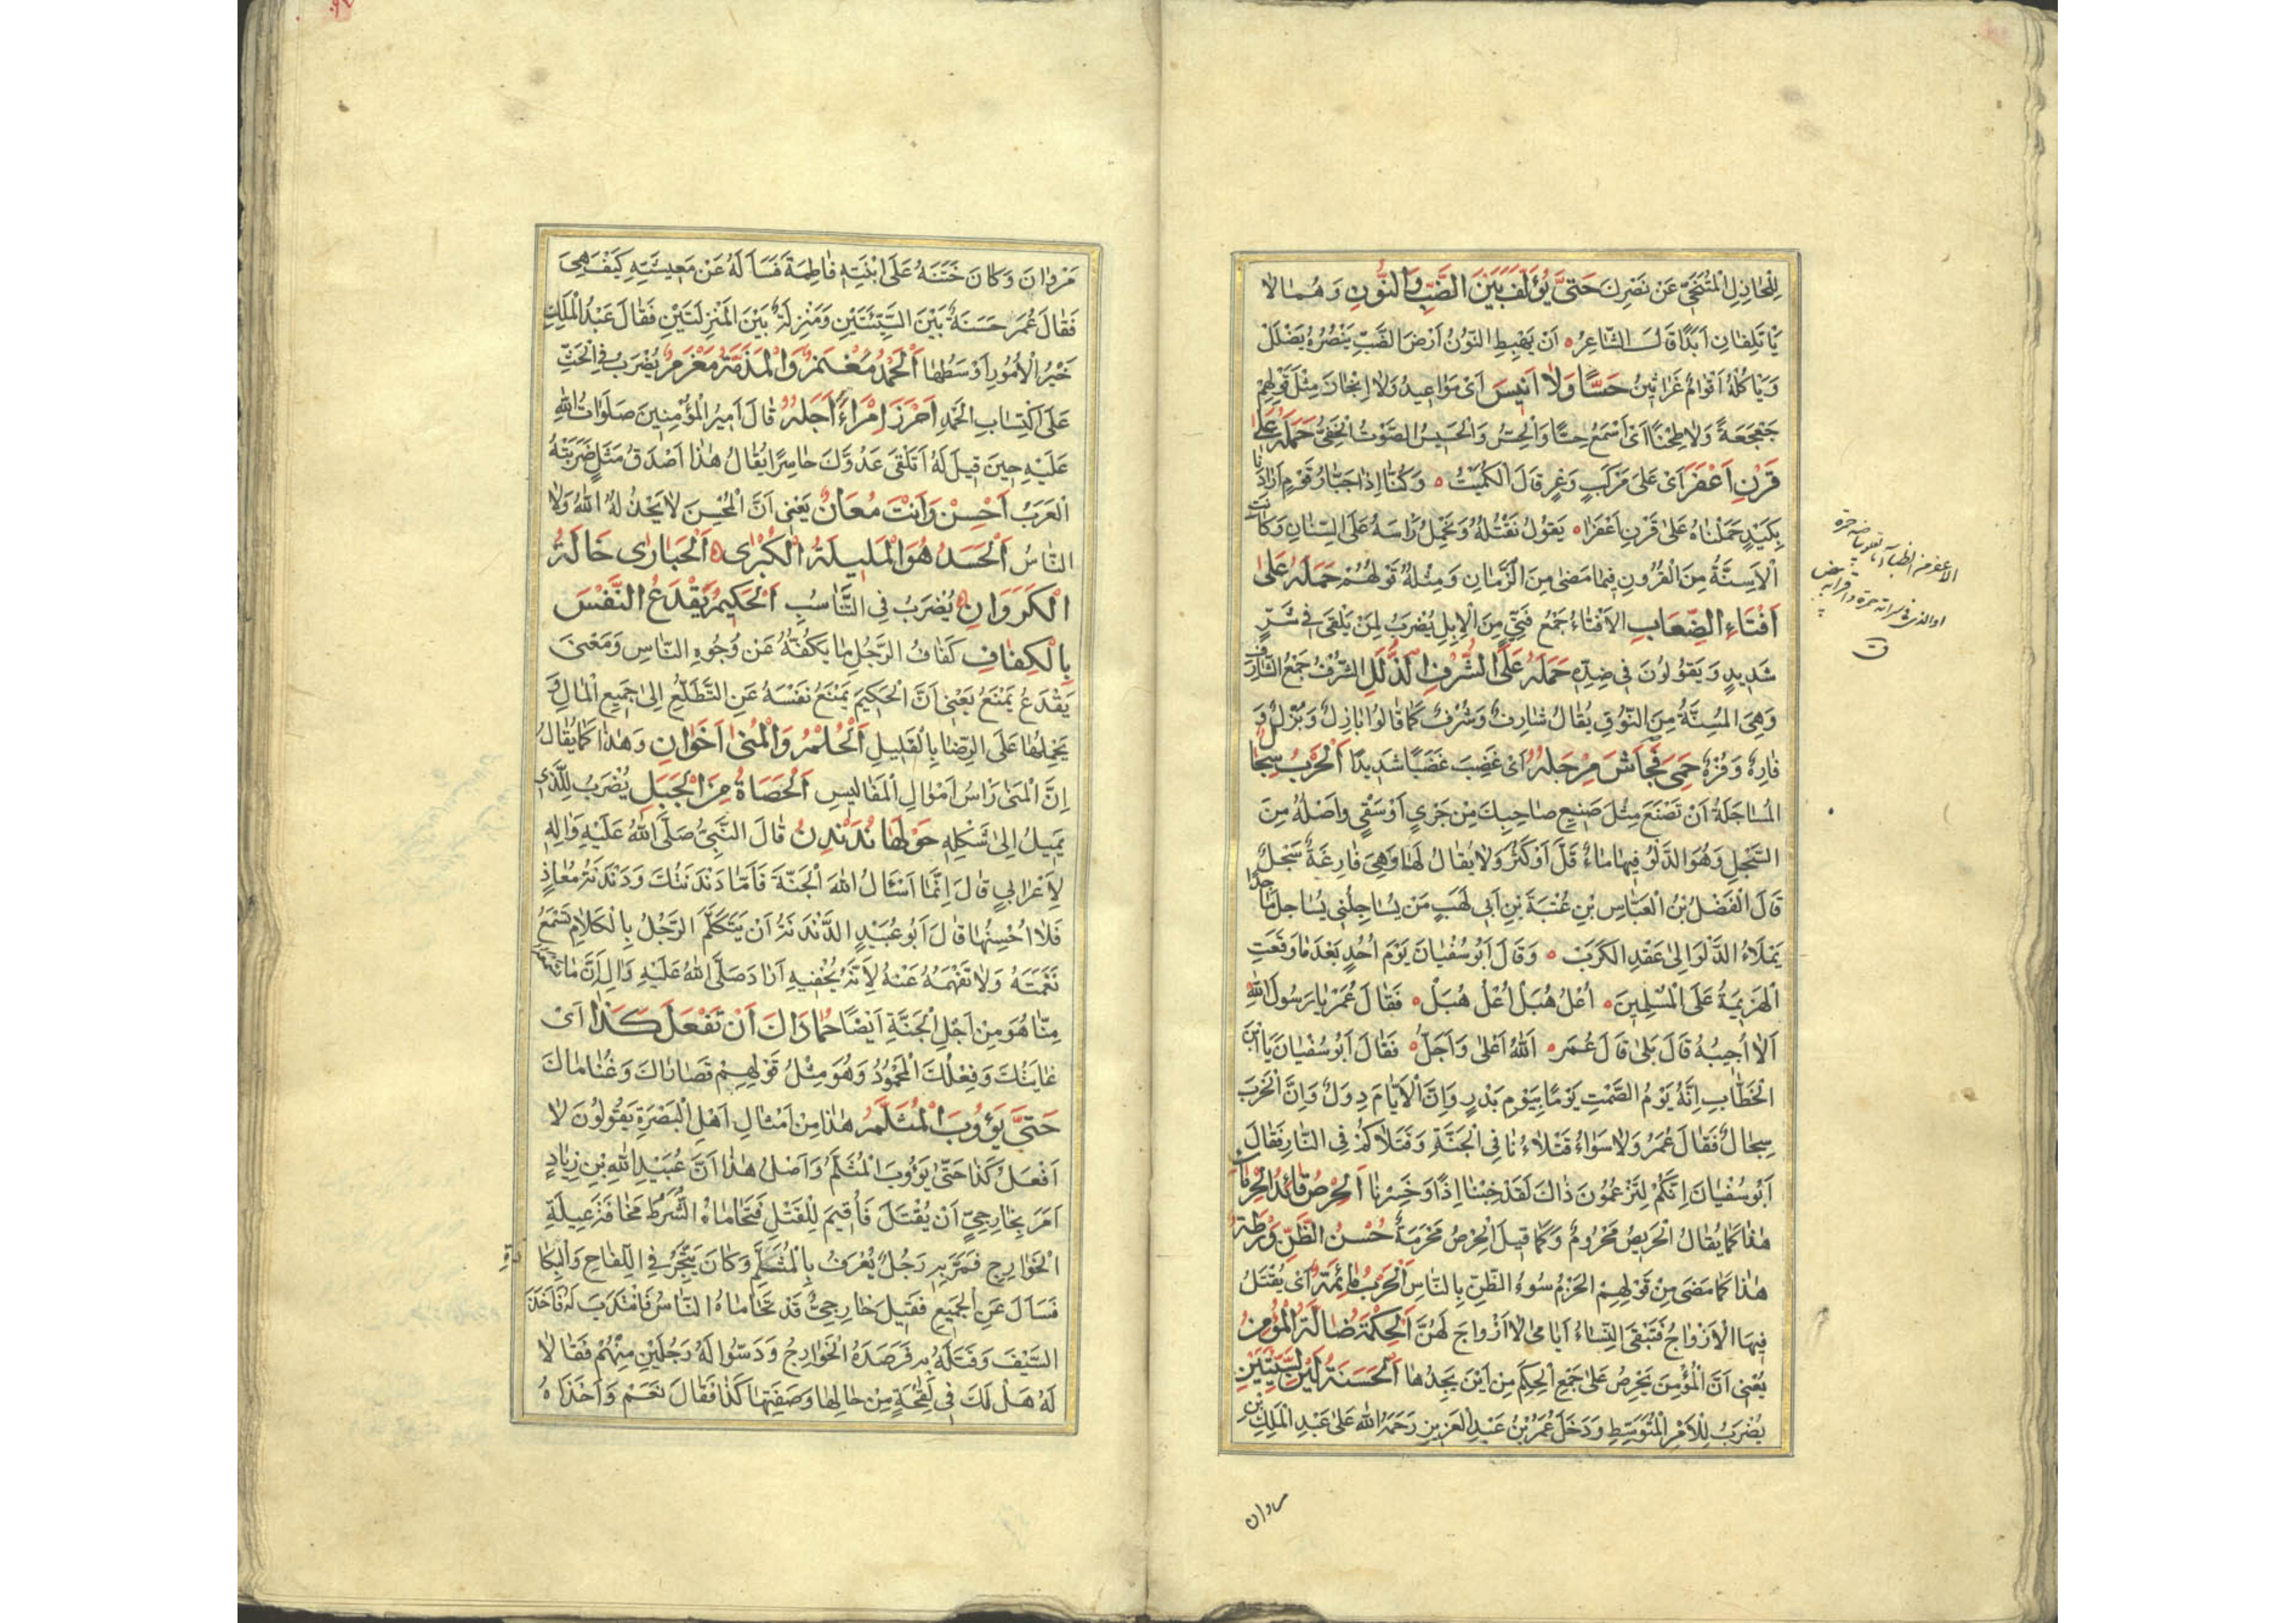 لِلْخَاذِلِ الْمُتَنَحِّي عَنْ نَصْرِكَ حَتَّى يُؤَلَّفَ بَيْنَ الضَّبِّ وَالنُّونِ وَهُمَا لَا
يَأْتَلِفَانِ اَبَدًا قَالَ الشَّاعِرُ ه اَنْ يَهْبِطِ النُّونُ اَرْضَ الضَّبِّ يَنْصُرُهُ يَضْلَلْ
وَيَأْكُلْهُ اَقْوَامٌ غَرَاثِينُ حَسًّا وَلَا اَنِيسَ اَىْ مَوَاعِيدُ وَلَا اِنْجَازَ مِثْلَ قَوْلِهِمْ
جَعْجَعَةً وَلَا طِحْنًا اَىْ اَسْمَعُ حِسًّا وَالْحِسُّ وَالْحَسِيسُ الصَّوْتُ الْخَفِيُّ حَمَلَهُ عَلَى
قَرْنِ اَعْفَرَ اَىْ عَلَى مَرْكَبٍ وَعْرٍ قَالَ الْكُمَيْتُ ه وَكُنَّا اِذَا جَبَّارُ قَوْمٍ اَرَادَنَا
بِكَيْدٍ حَمَلْنَاهُ عَلَى قَرْنِ اَعْفَرَا ه يَقُولُ نَقْتُلُهُ وَنَحْمِلُ رَاْسَهُ عَلَى السِّنَانِ وَكَانَتِ
الْاَسِنَّةُ مِنَ الْقُرُونِ فِيمَا مَضَى مِنَ الزَّمَانِ وَمِثْلُهُ قَوْلُهُمْ حَمَلَهُ عَلَى
اَفْتَاءِ الصِّعَابِ الْاَفْتَاءُ جَمْعُ فَتِيٍّ مِنَ الْاِبِلِ يُضْرَبُ لِمَنْ يَلْقَى فِي شَرٍّ
شَدِيدٍ وَيَقُولُونَ فِي ضِدِّهِ حَمَلَهُ عَلَى الشُّرُفِ الذُّلُلِ الشُّرُفُ جَمْعُ الشَّارِفِ
وَهِيَ الْمُسِنَّةُ مِنَ النُّوقِ يُقَالُ شَارِفٌ وَشُرُفٌ كَمَا قَالُوا بَازِلٌ وَبُزُلٌ وَ
فَارِهٌ وَفُرْهٌ حَمِيَ فَجَاشَ مِرْجَلُهُ اَىْ غَضِبَ غَضَبًا شَدِيدًا اَلْحَرْبُ سِجَالٌ
الْمُسَاجَلَةُ اَنْ تَصْنَعَ مِثْلَ صَنِيعِ صَاحِبِكَ مِنْ جَرْيٍ اَوْ سَقْيٍ وَاَصْلُهُ مِنَ
السَّجْلِ وَهُوَ الدَّلْوُ فِيهَا مَاءٌ قَلَّ اَوْ كَثُرَ وَلَا يُقَالُ لَهَا وَهِيَ فَارِغَةٌ سَجْلٌ
قَالَ الْفَضْلُ بْنُ الْعَبَّاسِ بْنِ عُتْبَةَ بْنِ اَبِي لَهَبٍ مَنْ يُسَاجِلْنِي يُسَاجِلْ مَاجِدًا
يَمْلَاءُ الدَّلْوَ اِلَى عَقْدِ الْكَرَبْ ه وَقَالَ اَبُو سُفْيَانَ يَوْمَ اُحُدٍ بَعْدَ مَا وَقَعَتِ
الْهَزِيمَةُ عَلَى الْمُسْلِمِينَ ه اُعْلُ هُبَلْ اُعْلُ هُبَلْ ه فَقَالَ عُمَرُ يَا رَسُولَ اللّٰهِ
اَلَا اُجِيبُهُ قَالَ بَلَى قَالَ عُمَرُ ه اَللّٰهُ اَعْلَى وَاَجَلُّ ه فَقَالَ اَبُو سُفْيَانَ يَا ابْنَ
الْخَطَّابِ اِنَّهُ يَوْمُ الصَّمْتِ يَوْمًا بِيَوْمِ بَدْرٍ وَاِنَّ الْاَيَّامَ دِوَلٌ وَاِنَّ الْحَرْبَ
سِجَالٌ فَقَالَ عُمَرُ وَلَا سَوَاءُ قَتْلَاءُنَا فِي الْجَنَّةِ وَقَتْلَاكُمْ فِي النَّارِ فَقَالَ
اَبُو سُفْيَانَ اِنَّكُمْ لَتَزْعُمُونَ ذَاكَ لَقَدْ خِبْنَا اِذًا وَخَسِرْنَا اَلْحِرْصُ قَائِدُ الْحِرْمَانِ
هٰذَا كَمَا يُقَالُ الْحَرِيصُ مَحْرُومٌ وَكَمَا قِيلَ الْحِرْصُ مَحْرَمَةٌ حُسْنُ الظَّنِّ وَرْطَةٌ
هٰذَا كَمَا مَضَى مِنْ قَوْلِهِمْ الْحَزْمُ سُوءُ الظَّنِّ بِالنَّاسِ اَلْحَرْبُ مَأْيَمَةٌ اَىْ يُقْتَلُ
فِيهَا الْاَزْوَاجُ فَتَبْقَى النِّسَاءُ اَيَامَى لَا اَزْوَاجَ لَهُنَّ اَلْحِكْمَةُ ضَالَّةُ الْمُؤْمِنِ
يَعْنِي اَنَّ الْمُؤْمِنَ يَحْرِصُ عَلَى جَمْعِ الْحِكَمِ مِنْ اَيْنَ يَجِدُهَا اَلْحَسَنَةُ بَيْنَ السَّيِّئَتَيْنِ
يُضْرَبُ لِلْاَمْرِ الْمُتَوَسِّطِ وَدَخَلَ عُمَرُ بْنُ عَبْدِ الْعَزِيزِ رَحِمَهُ اللّٰهُ عَلَى عَبْدِ الْمَلِكِ بْنِ
مَرْوَانَ وَكَانَ خَتَنَهُ عَلَى ابْنَتِهِ فَاطِمَةَ فَسَاَلَهُ عَنْ مَعِيشَتِهِ كَيْفَ هِيَ
فَقَالَ عُمَرُ حَسَنَةٌ بَيْنَ السَّيِّئَتَيْنِ وَمَنْزِلَةٌ بَيْنَ الْمَنْزِلَتَيْنِ فَقَالَ عَبْدُ الْمَلِكِ
خَيْرُ الْاُمُورِ اَوْسَطُهَا اَلْحَمْدُ مُغْنَمٌ وَالْمَذَمَّةُ مَغْرَمٌ يُضْرَبُ فِي الْحَثِّ
عَلَى اكْتِسَابِ الْحَمْدِ اَحْرَزَ اِمْرَاءً اَجَلُهُ قَالَ اَمِيرُ الْمُؤْمِنِينَ صَلَوَاتُ اللّٰهِ
عَلَيْهِ حِينَ قِيلَ لَهُ اَتَلْقَى عَدُوَّكَ حَاسِرًا يُقَالُ هٰذَا اَصْدَقُ مَثَلٍ ضَرَبَتْهُ
الْعَرَبُ اَحْسِنْ وَاَنْتَ مُعَانٌ يَعْنِي اَنَّ الْمُحْسِنَ لَا يَخْذُلُهُ اللّٰهُ وَلَا
النَّاسُ اَلْحَسَدُ هُوَ الْمَلِيلَةُ الْكُبْرَى ه اَلْحُبَارَى خَالَةُ
الْكَرَوَانِ ه يُضْرَبُ فِي التَّنَاسُبِ اَلْحَكِيمُ يَقْدَعُ النَّفْسَ
بِالْكِفَافِ كَفَافُ الرَّجُلِ مَا يَكُفُّهُ عَنْ وُجُوهِ النَّاسِ وَمَعْنَى
يَقْدَعُ يَمْنَعُ يَعْنِي اَنَّ الْحَكِيمَ يَمْنَعُ نَفْسَهُ عَنِ التَّطَلُّعِ اِلَى جَمِيعِ الْمَالِ وَ
يَحْمِلُهَا عَلَى الرِّضَا بِالْقَلِيلِ اَلْحُلْمُ وَالْمُنَى اَخَوَانِ وَهٰذَا كَمَا يُقَالُ
اِنَّ الْمُنَى رَاْسُ اَمْوَالِ الْمَفَالِيسِ اَلْحَصَاةُ مِنَ الْجَبَلِ يُضْرَبُ لِلَّذِي
يَمِيلُ اِلَى شَكْلِهِ حَوْلَهَا نُدَنْدِنُ قَالَ النَّبِيُّ صَلَّى اللّٰهُ عَلَيْهِ وَاٰلِهِ
لِاَعْرَابِيٍ قَالَ اِنَّمَا اَسْئَالُ اللّٰهَ الْجَنَّةَ فَاَمَّا دَنْدَنَتُكَ وَدَنْدَنَةُ مُعَاذٍ
فَلَا اُحْسِنُهَا قَالَ اَبُو عُبَيْدٍ الدَّنْدَنَةُ اَنْ يَتَكَلَّمَ الرَّجُلُ بِالْكَلَامِ تَسْمَعُ
نَغْمَتَهُ وَلَا تَفْهَمُهُ عَنْهُ لِاَنَّهُ يُخْفِيهِ اَرَادَ صَلَّى اللّٰهُ عَلَيْهِ وَاٰلِهِ اَنَّ مَا
مِنَّا هُوَ مِنْ اَجْلِ الْجَنَّةِ اَيْضًا حُمَادَاكَ اَنْ تَفْعَلَ كَذَا اَىْ
غَايَتُكَ وَفِعْلُكَ الْمَحْمُودُ وَهُوَ مِثْلُ قَوْلِهِمْ قَصَارَاكَ وَغُنَامَاكَ
حَتَّى يَؤُوبَ الْمُثَلَّمُ هٰذَا مِنْ اَمْثَالِ اَهْلِ الْبَصْرَةِ يَقُولُونَ لَا
اَفْعَلُ كَذَا حَتَّى يَؤُوبَ الْمُثَلَّمُ وَاَصْلُ هٰذَا اَنَّ عُبَيْدَ اللّٰهِ بْنِ زِيَادٍ
اَمَرَ بِخَارِجِيٍّ اَنْ يُقْتَلَ فَاُقِيمَ لِلْقَتْلِ فَتَحَامَاهُ الشُّرَطُ مَخَافَةَ غِيلَةِ
الْخَوَارِجِ فَمَرَّ بِهِ رَجُلٌ يُعْرَفُ بِالْمُثَلَّمِ وَكَانَ يَتَّجِرُ فِي اللِّقَاحِ وَالْبِكَارَةِ
فَسَاَلَ عَنِ الْجَمِيعِ فَقِيلَ خَارِجِيٌّ قَدْ تَحَامَاهُ النَّاسُ فَانْتَدَبَ لَهُ فَاَخَذَ
السَّيْفَ وَقَتَلَهُ بِهِ فَرَصَدَهُ الْخَوَارِجُ وَدَسُّوا لَهُ رَجُلَيْنِ مِنْهُمْ فَقَالَا
لَهُ هَلْ لَكَ فِي لَقْحَةٍ مِنْ حَالِهَا وَصَفَتِهَا كَذَا فَقَالَ نَعَمْ وَاَخَذَاهُ